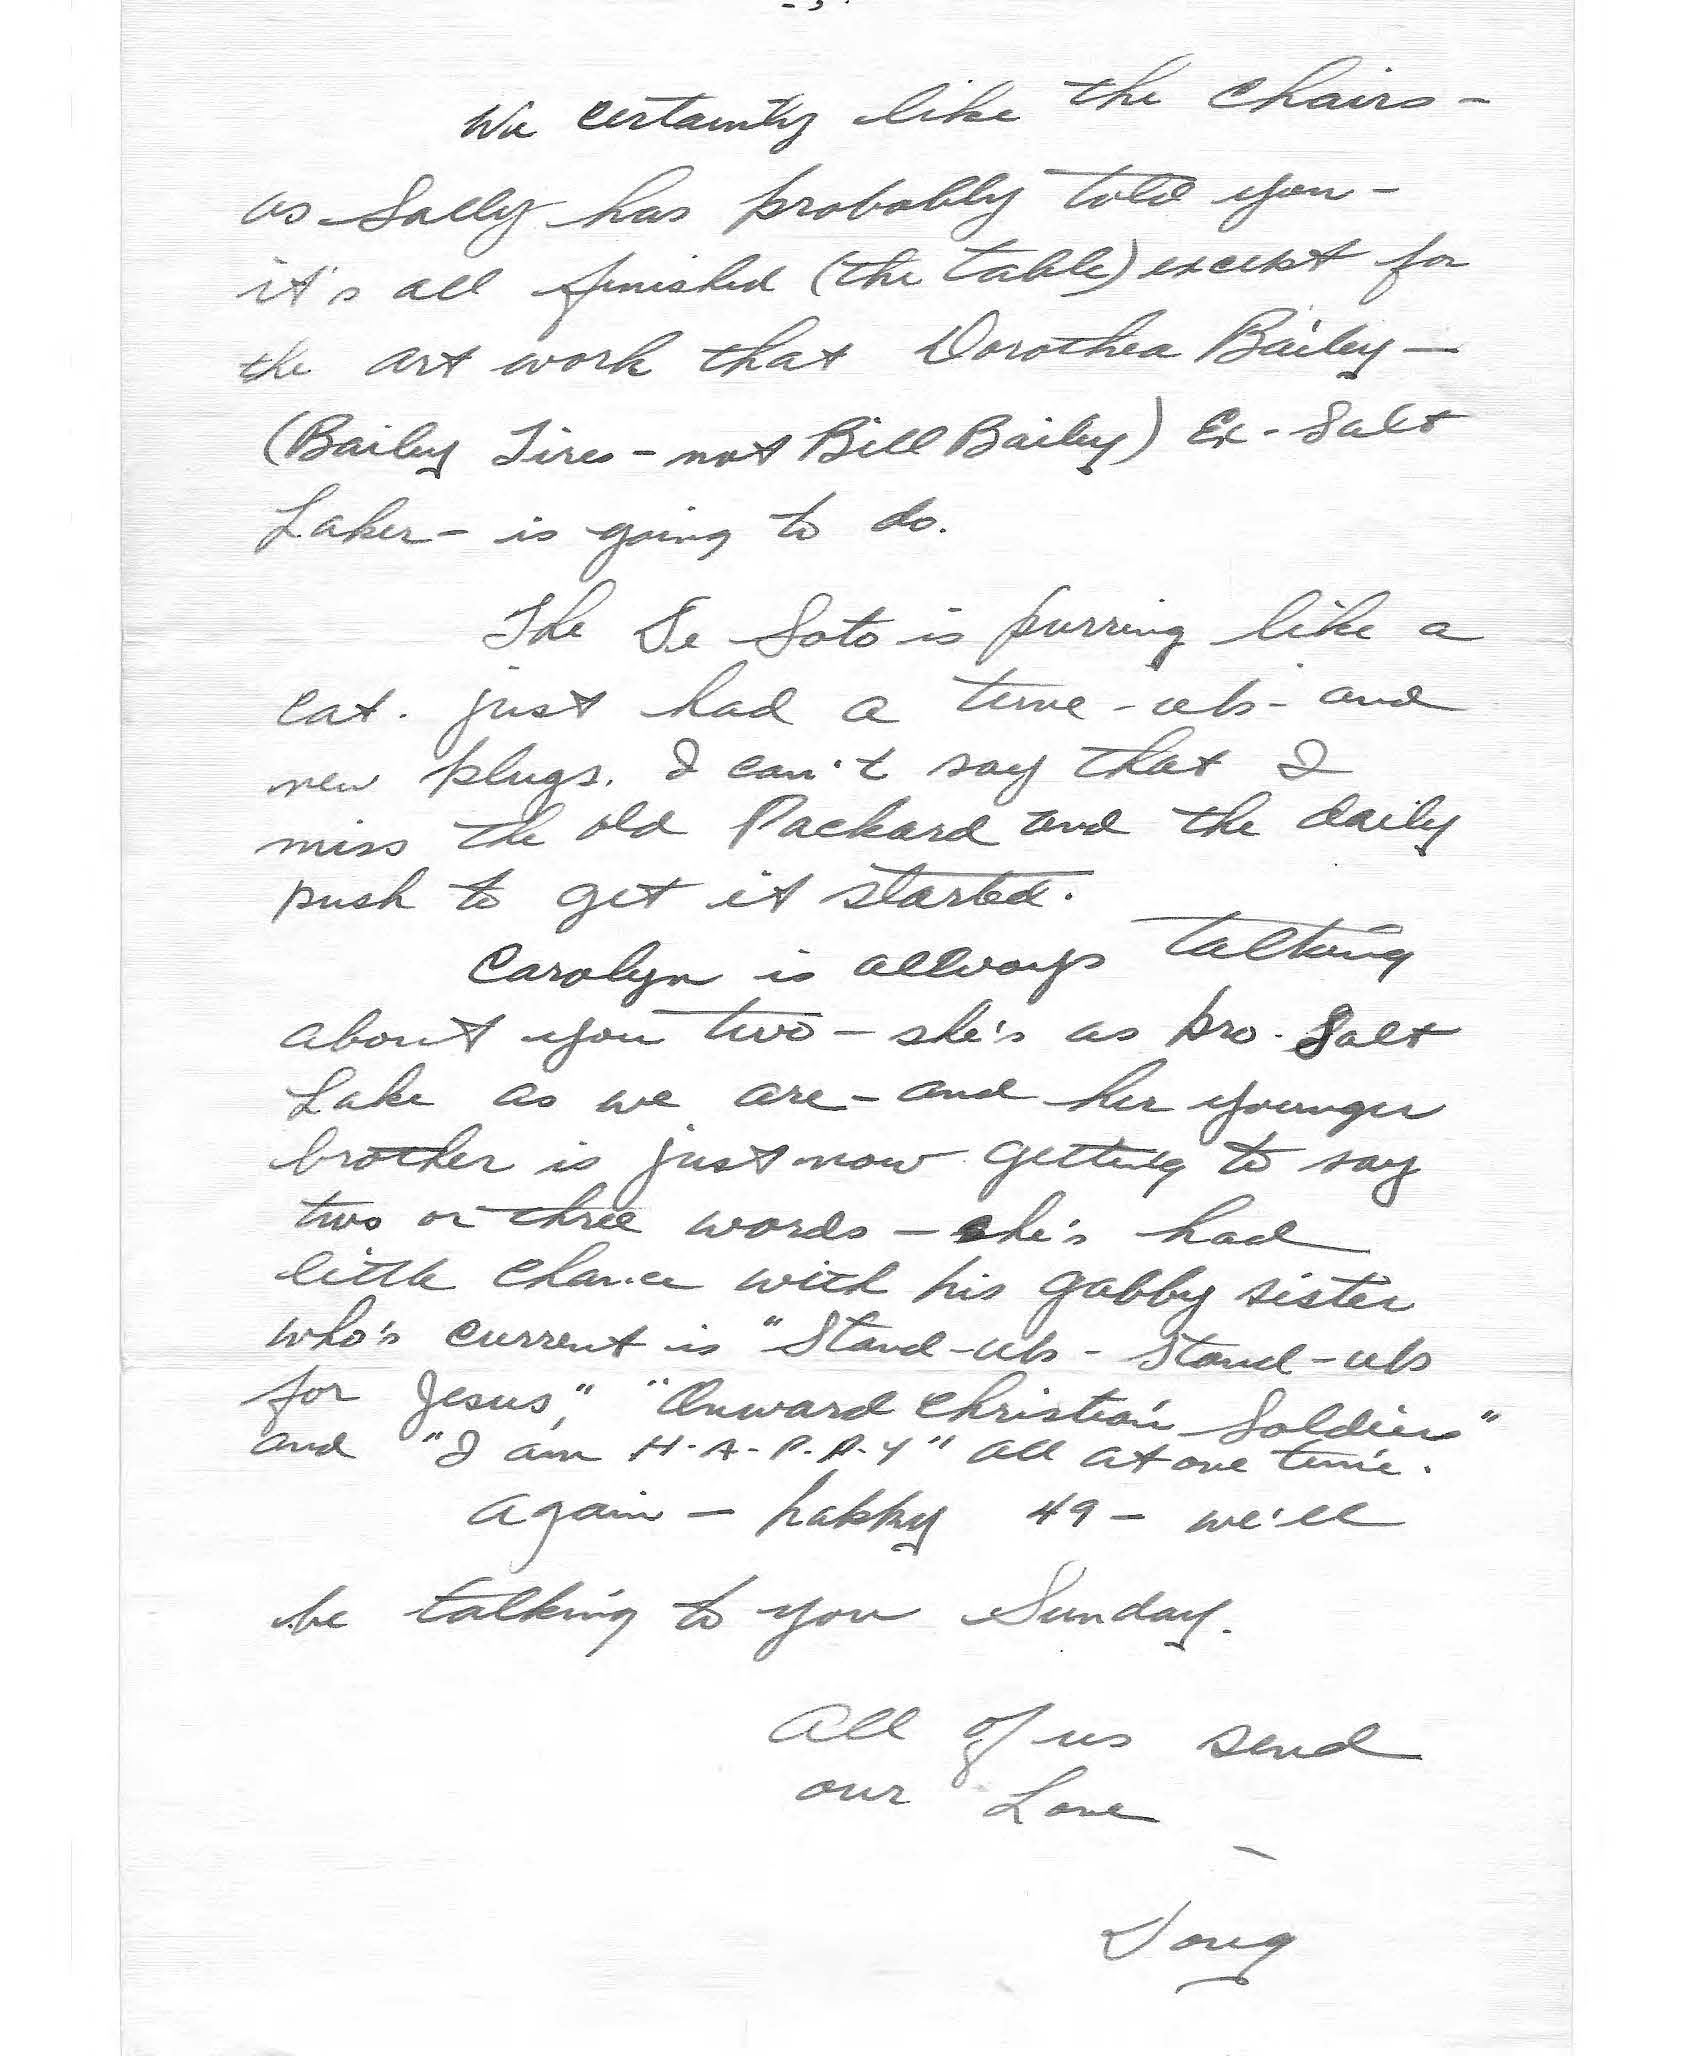 We certainly like the chairs -
as Sally has probably told you -
it's all finished (the table) except for
the art work that Dorothea Bailey —
(Bailey Tires - not Bill Bailey) Ex-Salt
Laker - is going to do.
The De Soto is purring like a
cat. just had a tune-up - and
new plugs. I can't say that I
miss the old Packard and the daily
push to get it started.
Carolyn is allways talking
about you two - she's as pro-Salt
Lake as we are - and her younger
brother is just now getting to say
two or three words - he's had
little chance with his gabby sister
who's current is "Stand-up - Stand-up
for Jesus", "Onward Christian Soldiers"
and "I am H-A-P-P-Y" all at one time.
Again - happy 49 - we'll
be talking to you Sunday.
All of us send
our Love
-
Doug